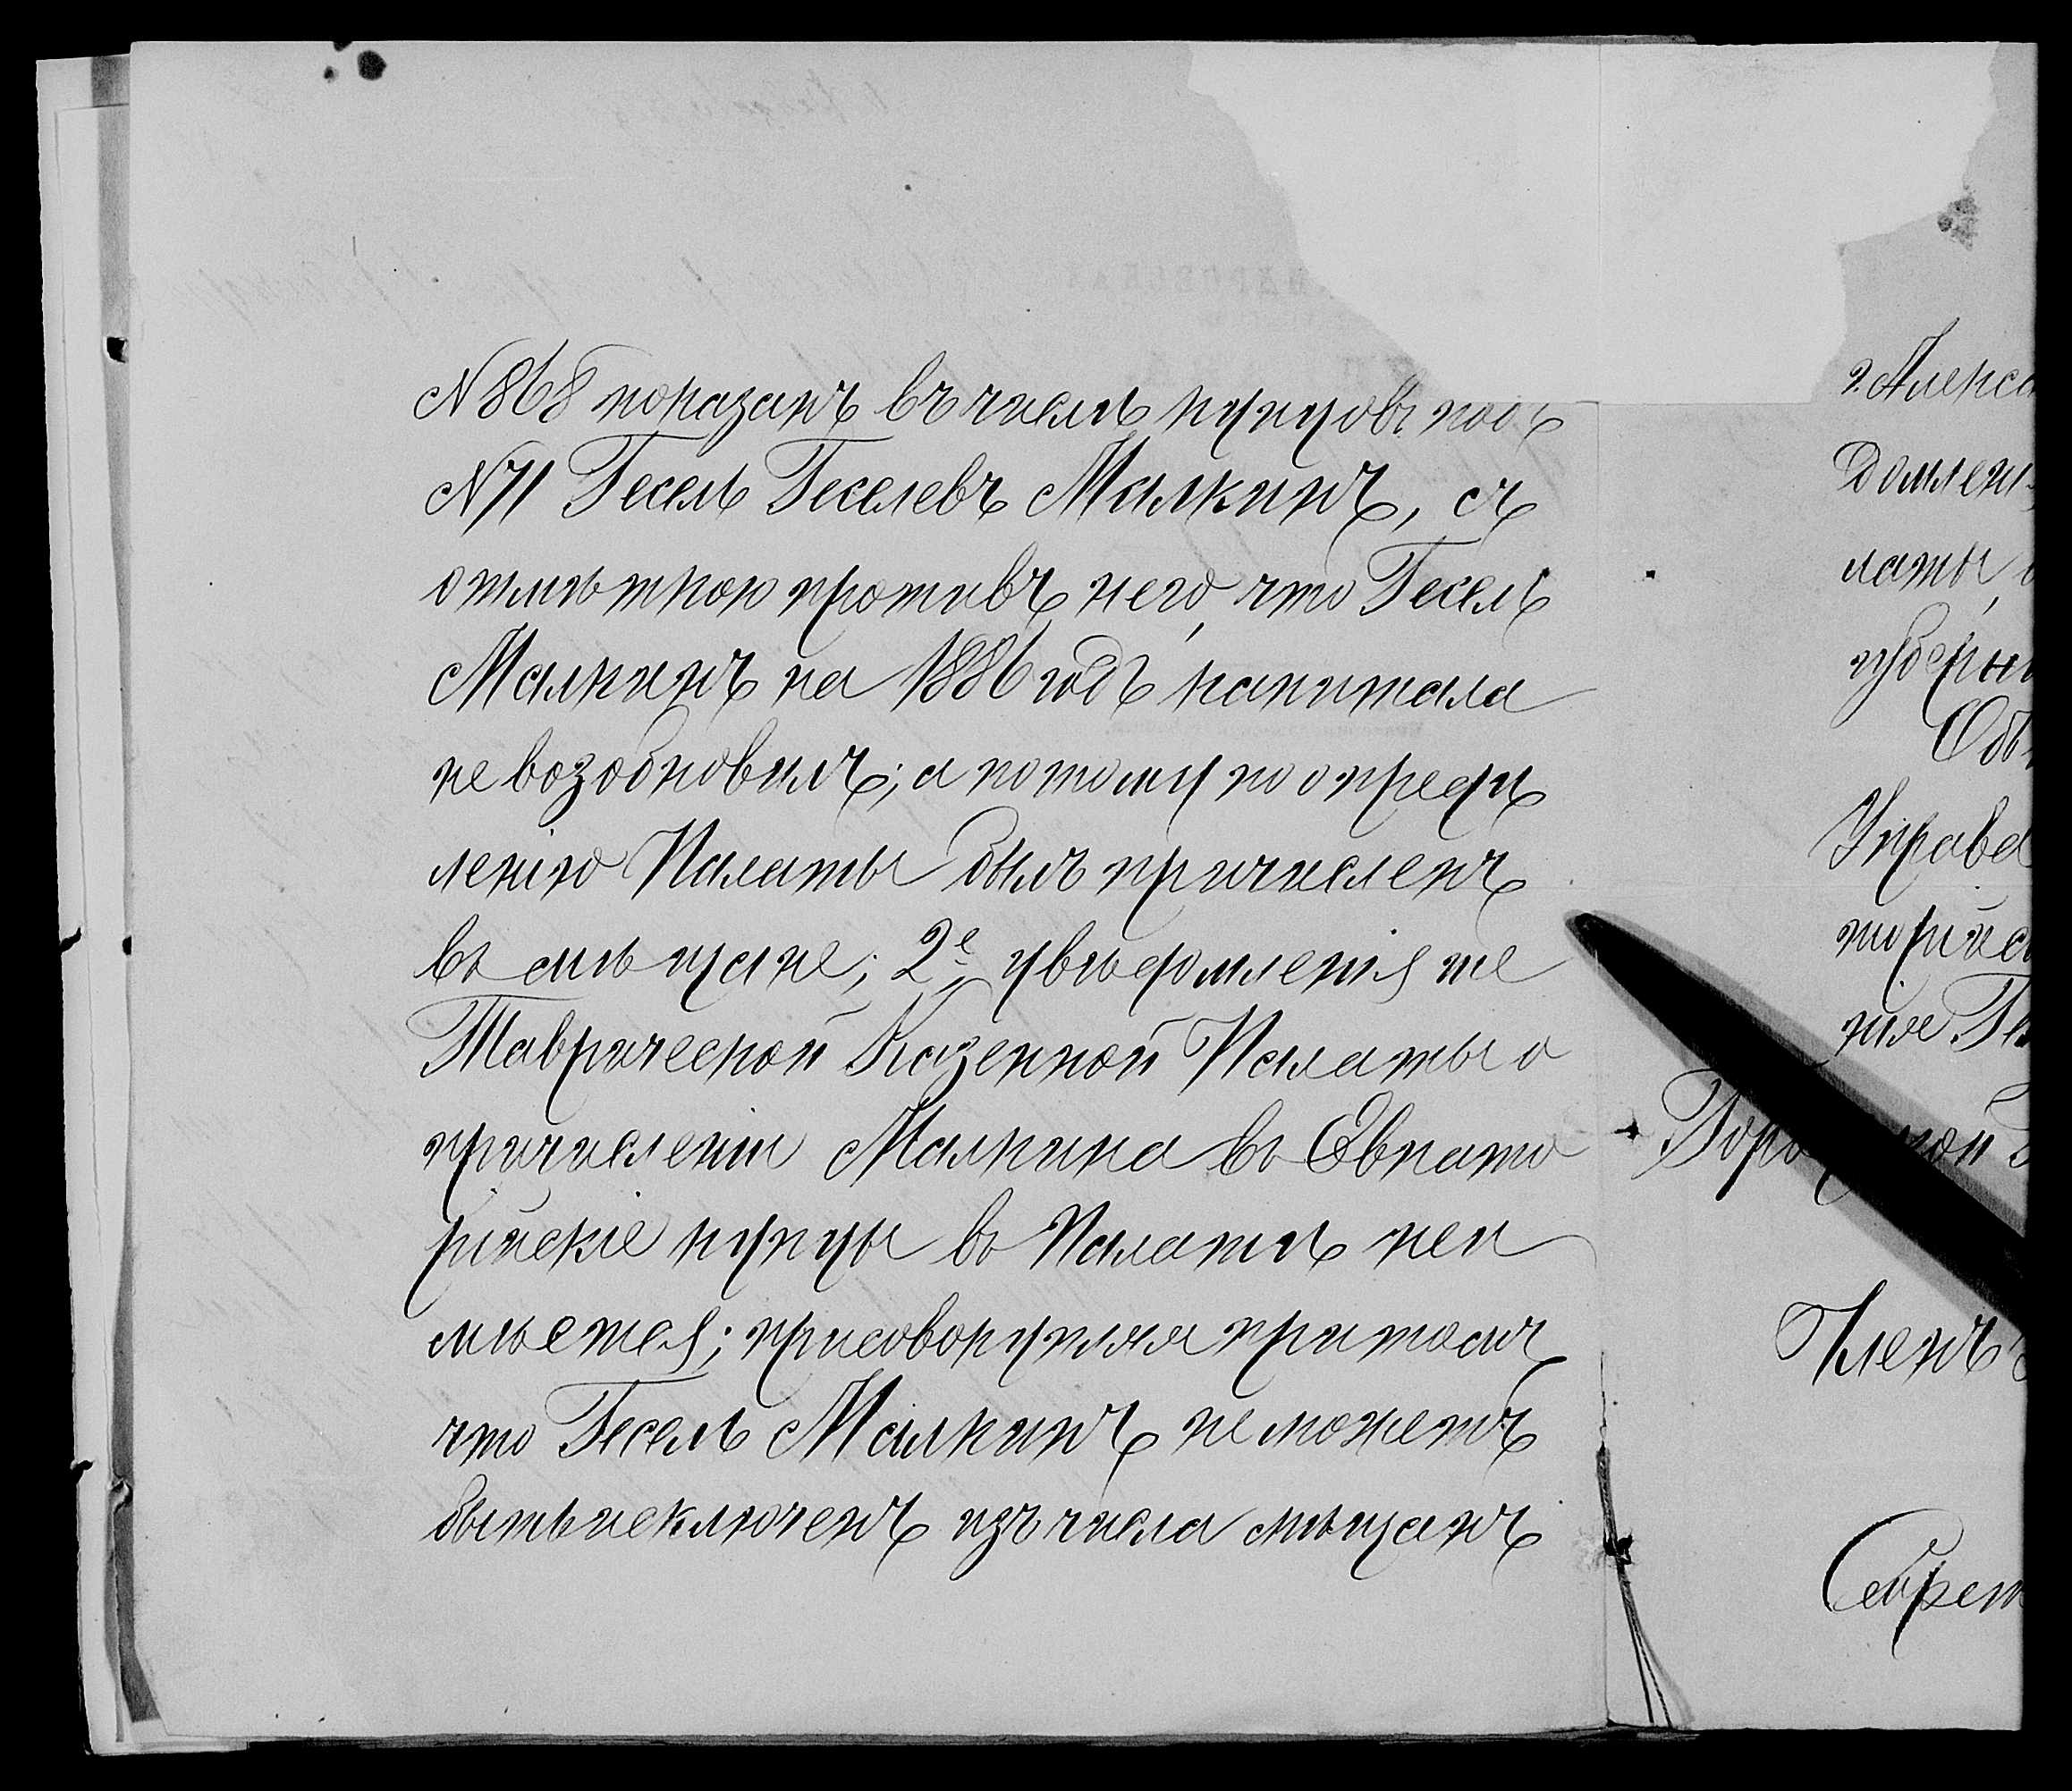 № 868 показанъ въ числѣ купцовъ подъ
№ 71 Гесель Геселевъ Малкинъ, съ
отмѣткою противъ него, что Гесель
Малкинъ на 1886 годъ капитала
не возобновилъ; а потому по опредѣ
ленію Палаты былъ причисленъ
въ мѣщане; 2е, увѣдомленія же
Таврической Казенной Палаты о
причисленіи Малкина въ Евпато
рійскіе купцы въ Палатѣ неи
мѣется; присовокупляя при томъ
что Гесель Малкинъ не можетъ
быть исключенъ изъ числа мѣщанъ
г. Алекса
домлен
латы
губерн
Объ
Управа
торійс
ніе Ге
Членъ
Секрет